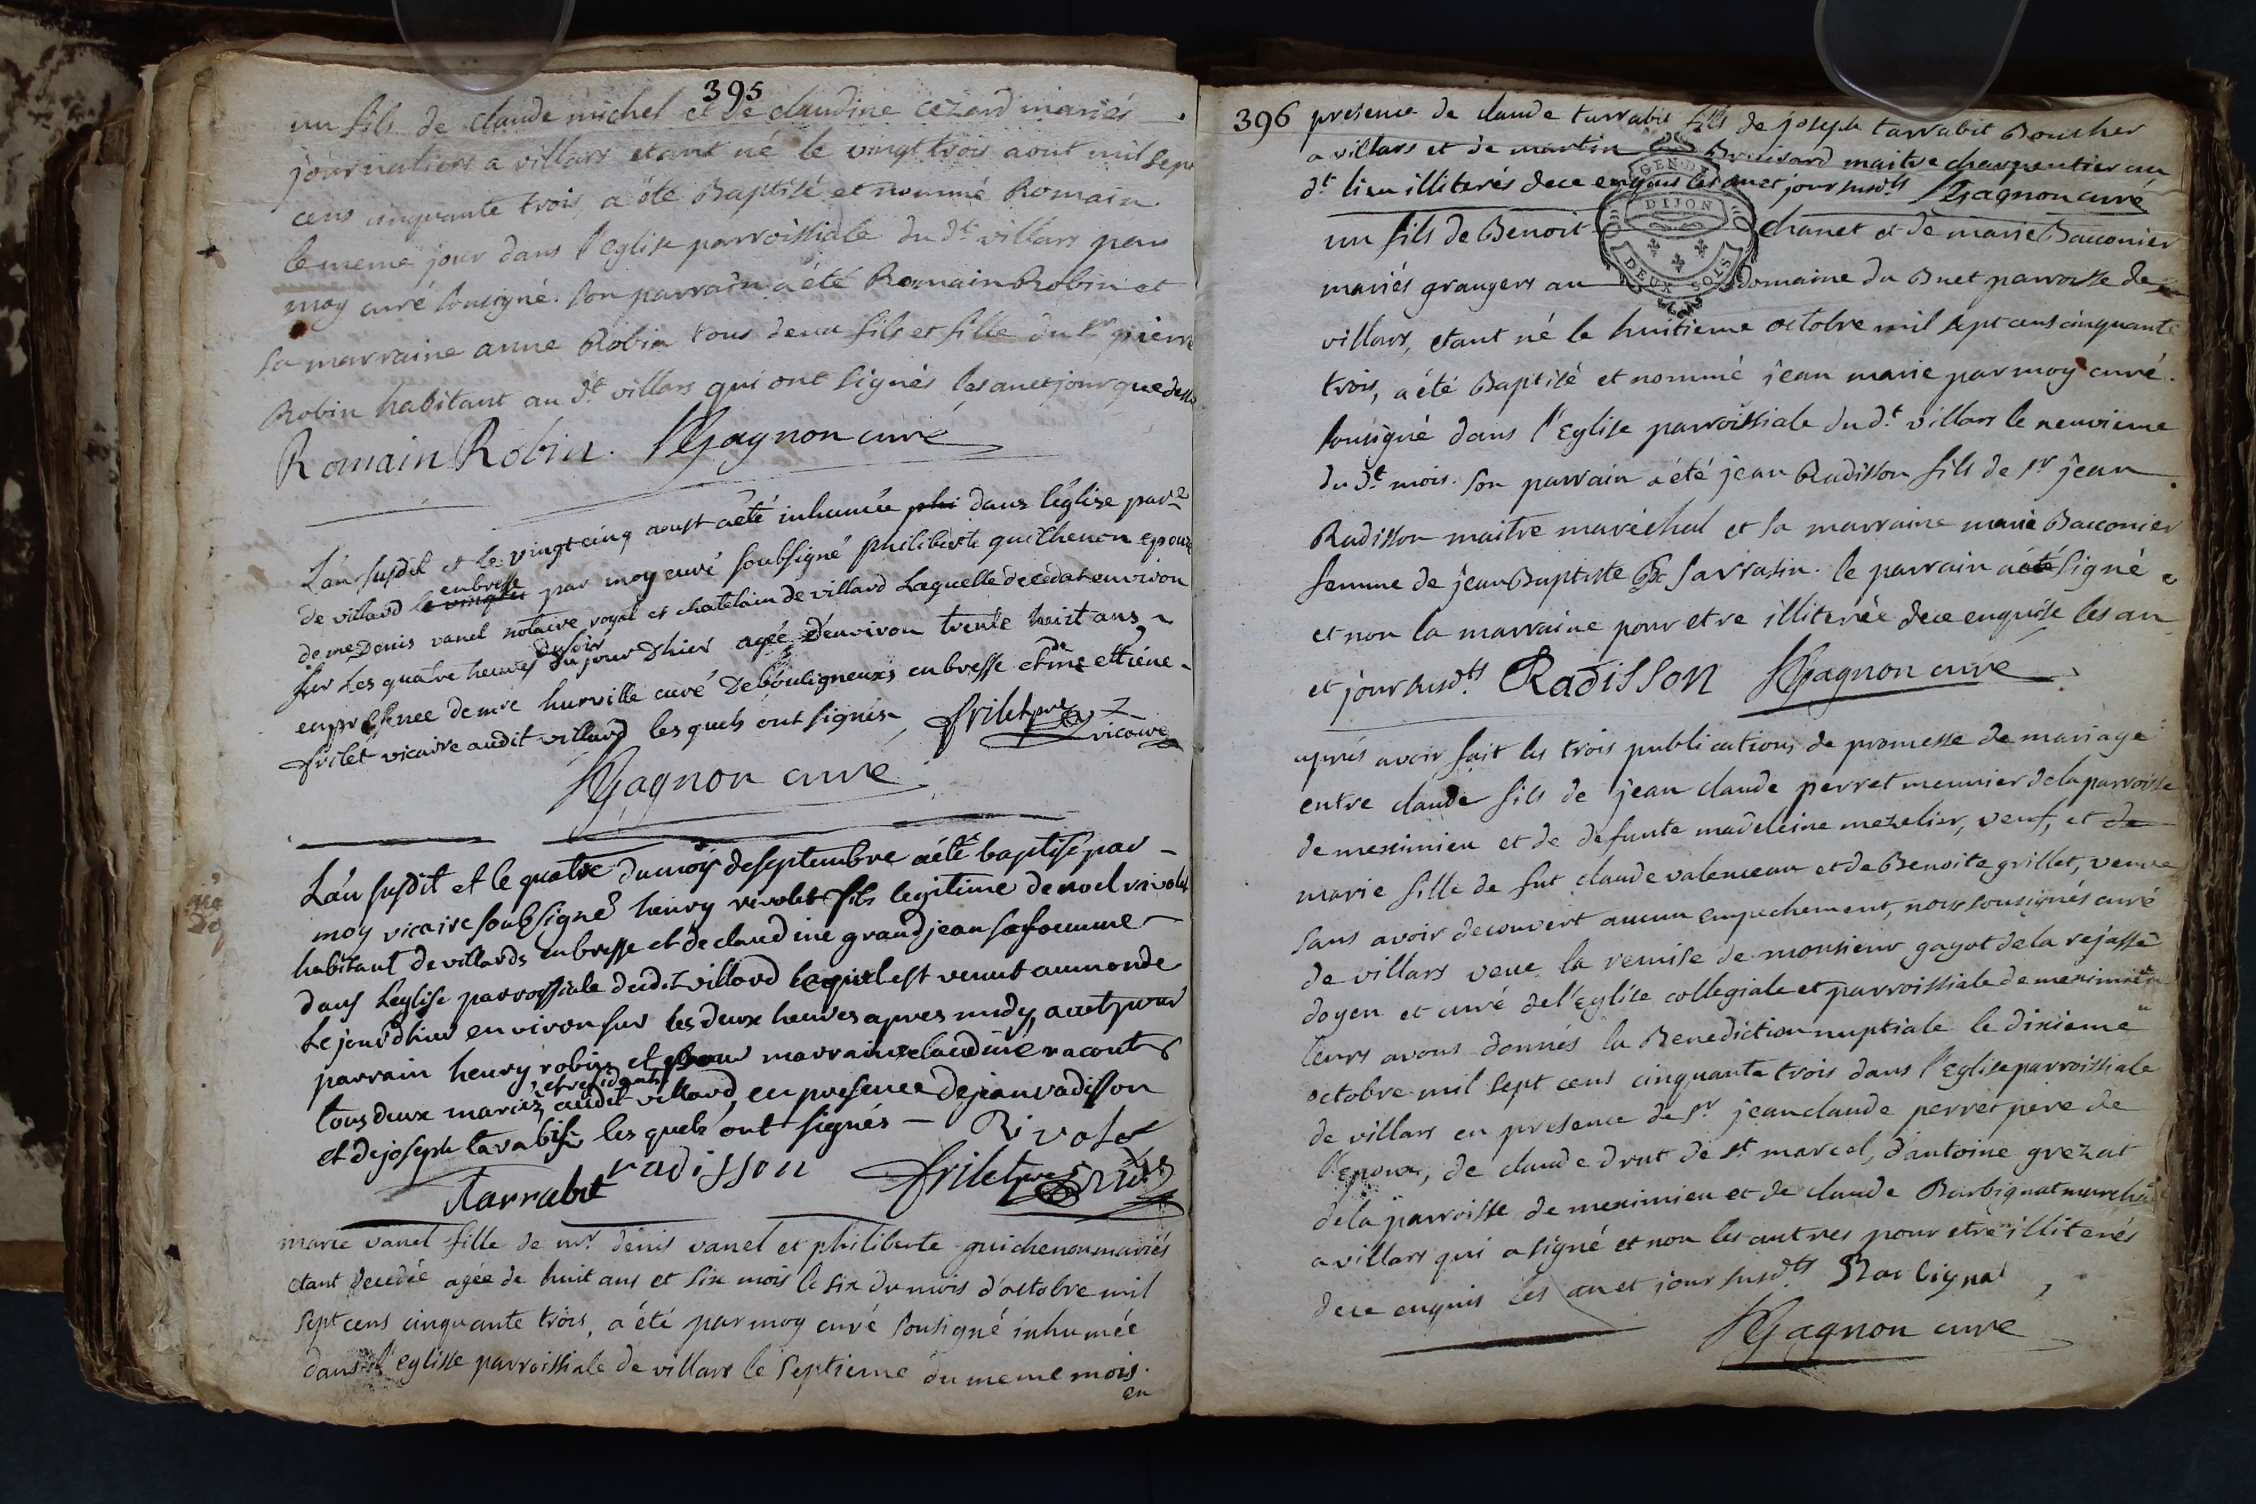 395
un fils de claude michel et de claudine cezard mariés
journaliers a villars etant né le vingt trois aout mil sept
cens cinquante trois, a été Baptisé et nommé Romain
le meme jour dans l'eglise parroissiale du dt villars par
moy curé sousigné. son parrain a été Romain Robin et
sa marraine anne Robin tous deux fils et fille du sr pierre
Robin habitant au dt villars qui ont signés les an et jour que dessus
Romain Robin. Gagnon curé
L'an susdit et le vingt cinq aoust a été inhumée phi dans l'églize par
de villard en bresse par moy curé soubsigné philiberte guichenon epouse
de me Denis vanel notaire royal et chatelain de villard Laquelle decedat environ
sur Les quatre heures du soir du jour Dhier agée d'environ trente huit ans
en presence de mre hurville curé De bouligneux en bresse et de mre ettiene
frilet vicaire audit villard les quels ont signés frilet pre vicaire
Gagnon curé
L'an susdit et le quatre du mois de septembre a été baptisé par
moy vicaire soubsigné henry rivolet fils legitime de noel rivolet
habitant de villards en bresse et de claudine grandjean sa femme
dans Leglise parrossiale dudit villard lequel est venut au monde
Le jour dhier environ sur les deux heures apres midy, a eut pour
parrain henry robin et pour marraine claudine racont
tous deux mariez, et residents audit villard, en presence de jean radisson
et de joseph tarabit, les quels ont signés Rivolet
Tarrabit radisson frilet pre
marie vanel fille de mr denis vanel et philiberte guichenon mariés
etant decedée agée de huit ans et six mois le six du mois d'octobre mil
sept cens cinquante trois, a été par moy curé sousigné inhumée
dans l'eglise parroissiale de villars le septieme du meme mois.
en
396 presence de claude tarrabit fils de joseph tarrabit Boucher
a villars et de martin Brevard maitre charpentier au
dt lieu illiterés de ce enquis les an et jour susdts Gagnon curé
GEN DE
DIJON
DEUX SOLS
un fils de Benoit chanet et de marie Bacconier
mariés grangers au domaine du Buet parroisse de
villars, etant né le huitieme octobre mil sept cens cinquante
trois, a été Baptisé et nommé jean marie par moy curé
sousigné dans l'Eglise parroissiale du dt villars le neuvieme
du dt mois. son parrain a été jean Radisson fils de sr jean
Radisson maitre maréchal et sa marraine marie Bacconier
femme de jean Baptiste Sarrasin. le parrain a été signé
et non la marraine pour etre illiterée de ce enquise les an
et jour susdts Radisson Gagnon curé
aprés avoir fait les trois publications de promesse de mariage
entre claude fils de jean claude perret meunier de la parroisse
de meximieu et de defunte madeleine mezelier, veuf, et de
marie fille de fut claude valenceau et de Benoite grillet, veuve
sans avoir decouvert aucun empechement, nous sousignés curé
de villars veue la remise de monsieur gayot de la rejasse
doyen et curé de l'Eglise collegiale et parroissiale de meximieu
leurs avons donnés la Benediction nuptiale le dixieme
octobre mil sept cens cinquante trois dans l'Eglise parroissiale
de villars en presence de sr jean claude perret pere de
l'epoux, de claude drut de st marcel, d'antoine grezat
de la parroisse de meximieu et de claude Barbignat
a villars qui a signé et non les autres pour etre illiterés
de ce enquis les an et jour susdts Barbignat
Gagnon curé